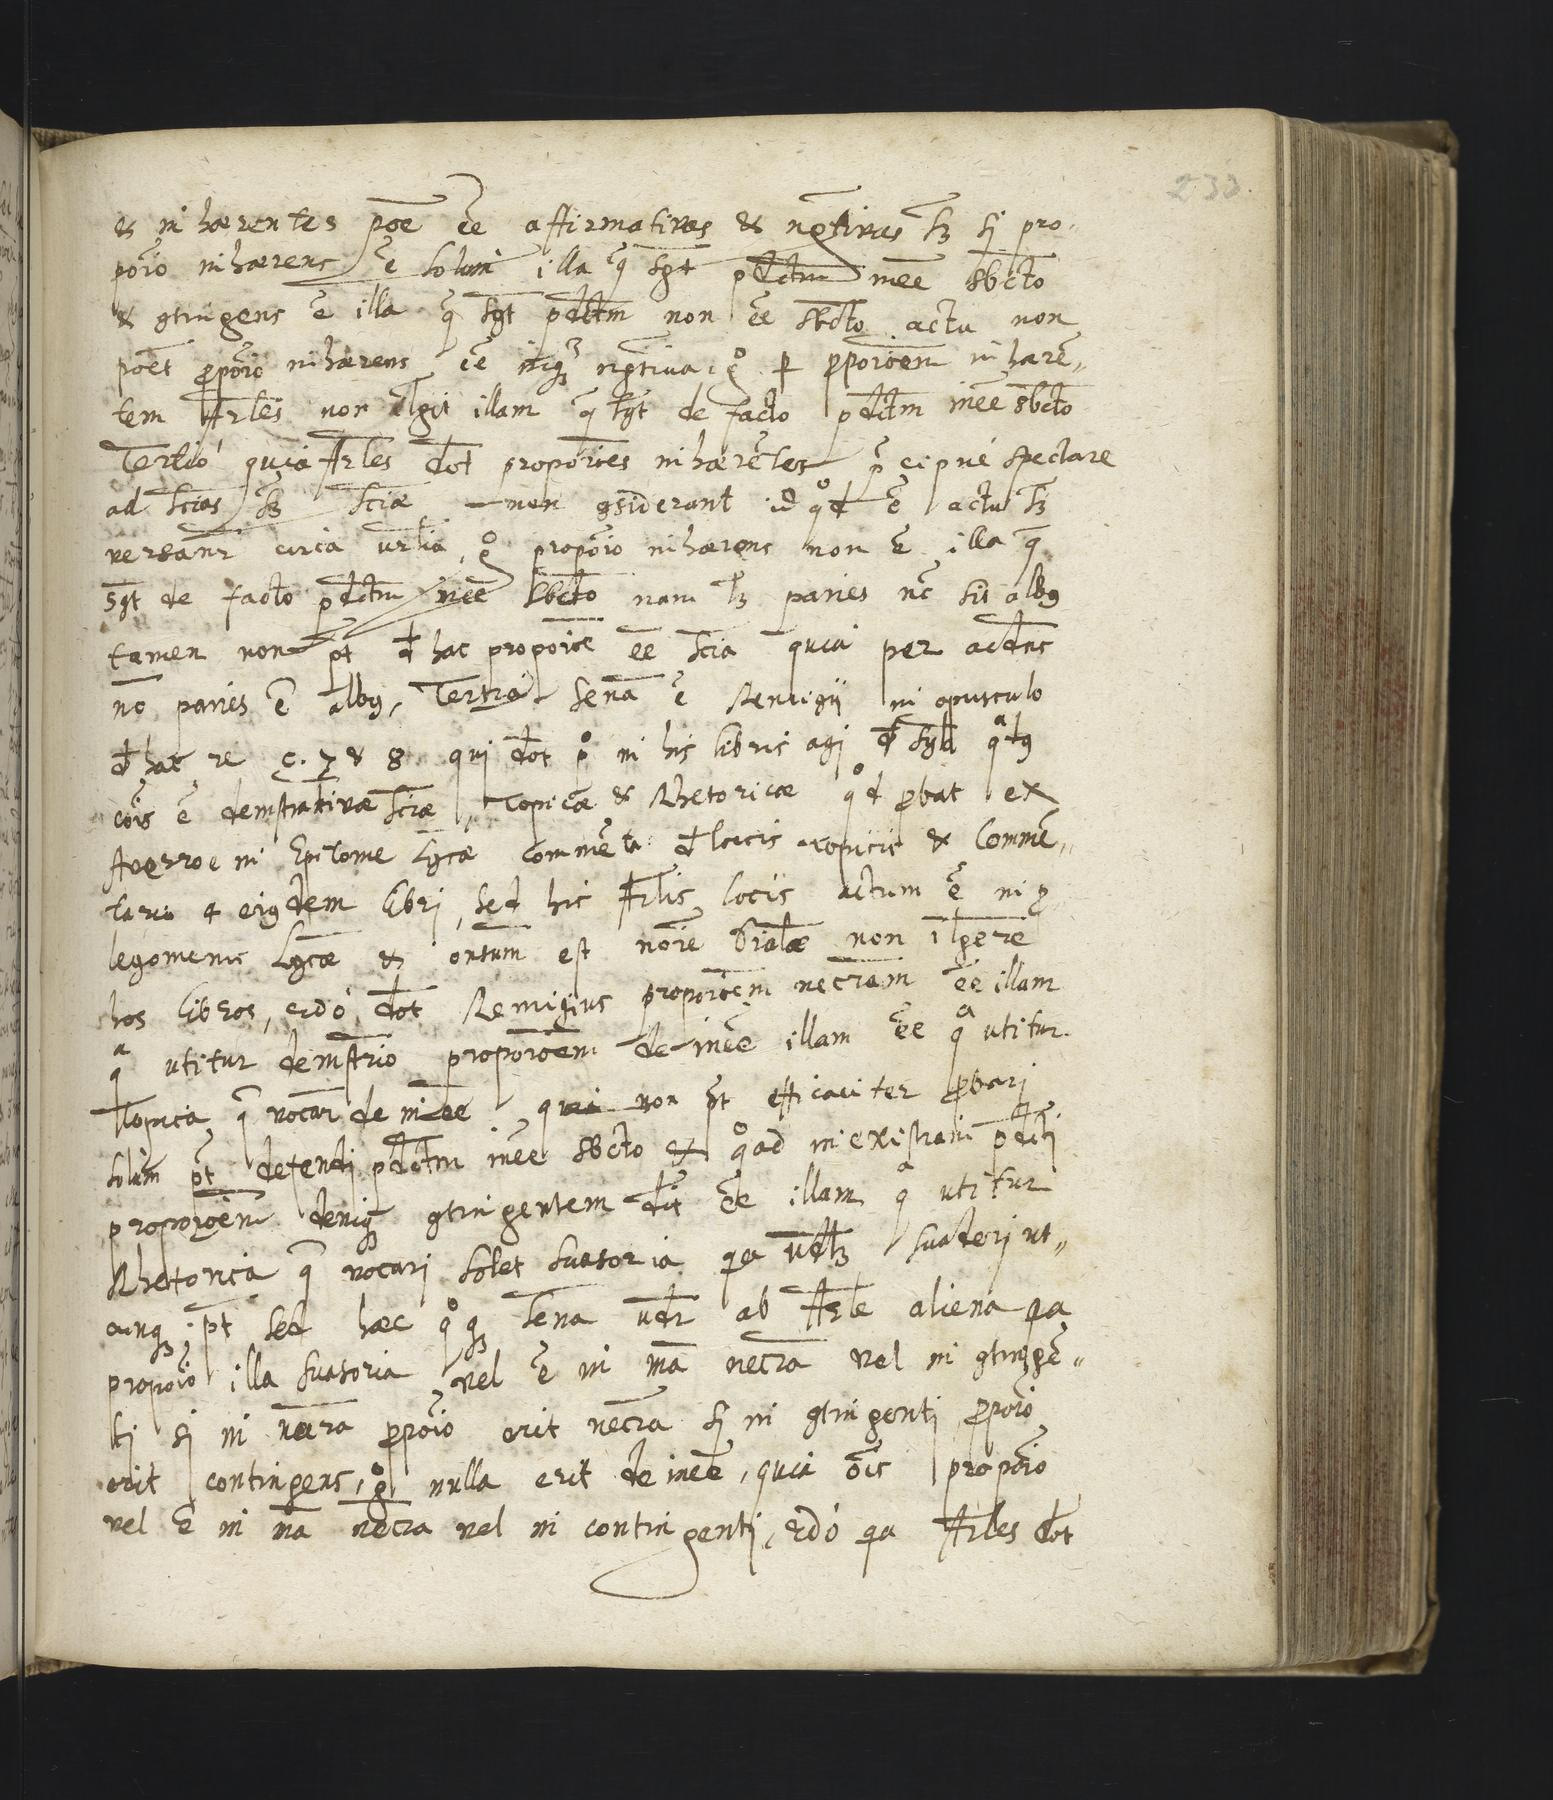 233.
& inhærentes poē eē affirmativas & ngtivas sȝ si pro-
poīo inhærens ē solum illa q̄ sgt pdctm ineē sbcto
& gtingens ē illa q̄ sgt pdctm non eē sbcto actu non
poēt propoīo inhærens eē inqȝ ngtiva, gº p propoīoem inharē„
tem Arles non ilgit illam q̄ sgt de facto pdctm ineē sbcto
Tertiò quia Arles dot propoīoes inhærētes p̄cipuè spectare
ad scias sȝ sciæ non gsiderant id qd ē actu sȝ
versanr circa urlia, gº propoīo inhærens non ē illa q̄
sgt de facto pdctm ineē sbcto nam lȝ paries nc sit albg
tamen non pt d hac propoīoe eē scia quia per accdns
no paries ē albg, Tertia sena ē Remigij in opusculo
d hac re c. 7 & 8 qui dot pº in his libris agi d syllo qatg
cois ē demstrativæ sciæ, Topicæ & Rhetoricæ qd probat ex
Averroe in Epitome Lgcæ commēta d locis topicis & Commē„
tario 4 eigdem libri, sed his Arlis locis actum ē in pro
legomenis Lgcæ & ontum est noīe Dialæ non ilgere
hos libros, erdò dot Remigius propoīoem necram eē illam
qa utitur demstrio propoīoem de ineē illam eē qa utitur
Topica, q̄ vocar de ineē quia non pt efficaciter probari
solum pt defendi pdctm ineē sbcto & qoad inexistam pdcti
propoīoem deniqȝ gtingentem dit eē illam qa utitur
Rhetorica q̄ vocari solet suasoria qa udlȝ suaderi ut„
cunqȝ pt sed hæc qºqȝ sena udr ab Arle aliena qa
propoīo illa suasoria vel ē in ma necra vel in gtingē„
ti si in necra propoīo erit necra si in gtingenti propoīo
erit contingens, gº nulla erit de ineē, quia ois propoīo
vel ē in ma necra vel in contingenti, erdò qa Arles dot